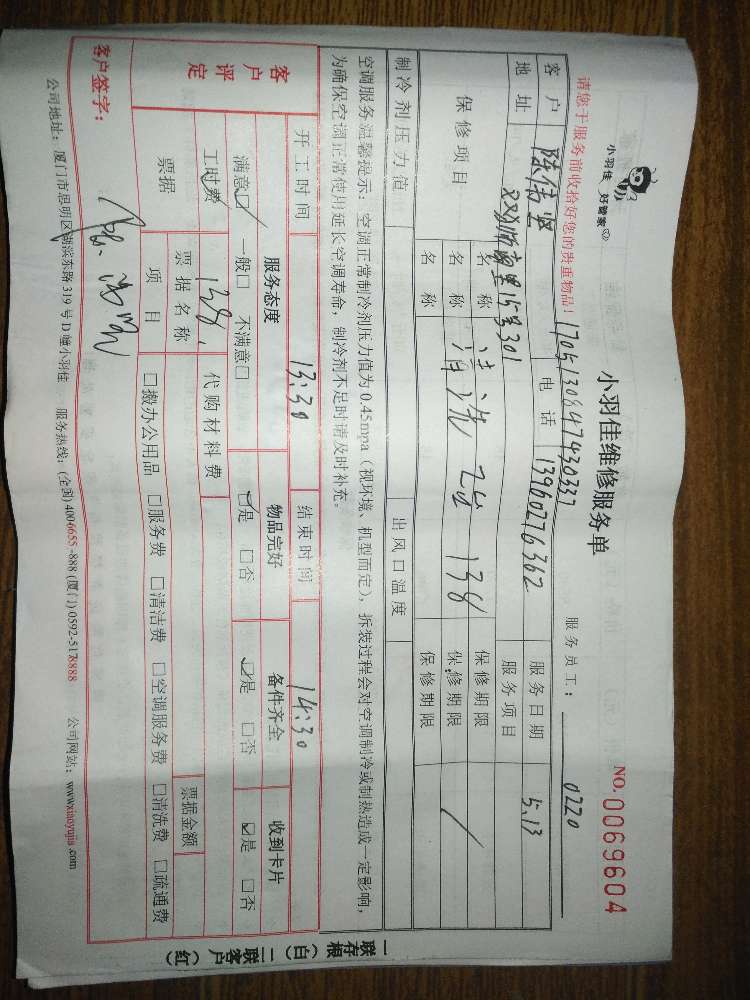 小羽佳 好管家
小羽佳维修服务单
NO.0069604
请您于服务前收拾好您的贵重物品!
17051308474930337
服务员工: 0220
客户 陈伟坚 电话 13960276362 服务日期 5.13
地址 15号301 服务项目
保修项目 名称 清洗 138 保修期限
名称 保修期限
名称 保修期限
制冷剂压力值 出风口温度
空调服务温馨提示:空调正常制冷剂压力值为0.45mpa(视环境、机型而定),拆装过程会对空调制冷或制热造成一定影响,
为确保空调正常使用延长空调寿命,制冷剂不足时请及时补充。
开工时间 13:30 结束时间 14:30
客户评定 服务态度 物品完好 备件齐全 收到卡片
满意☑ 一般□ 不满意□ ☑是 □否 ☑是 □否 ☑是 □否
工时费 138. 代购材料费
票据 票据名称 票据金额
项目 □搬办公用品 □服务费 □清洁费 □空调服务费 □清洗费 □疏通费
客户签字:
公司地址:厦门市思明区湖滨东路319号D幢小羽佳 服务热线:(全国)4006655-888(厦门)0592-5178888 公司网站:www.xiaoyujia.com
一联存根(白)二联客户(红)